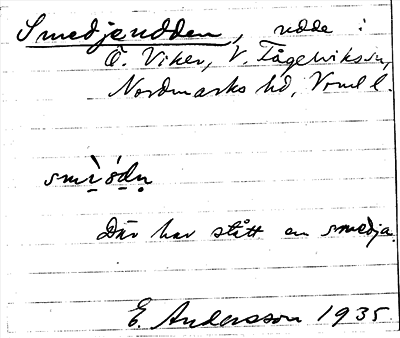 Smedjeudden, udde i
Ö. Viker, V. Fågelviks sn,
Nordmarks hd, Vrml l.
smì̱ ó̱dṇ
Där har stått en smedja.
E. Andersson 1935